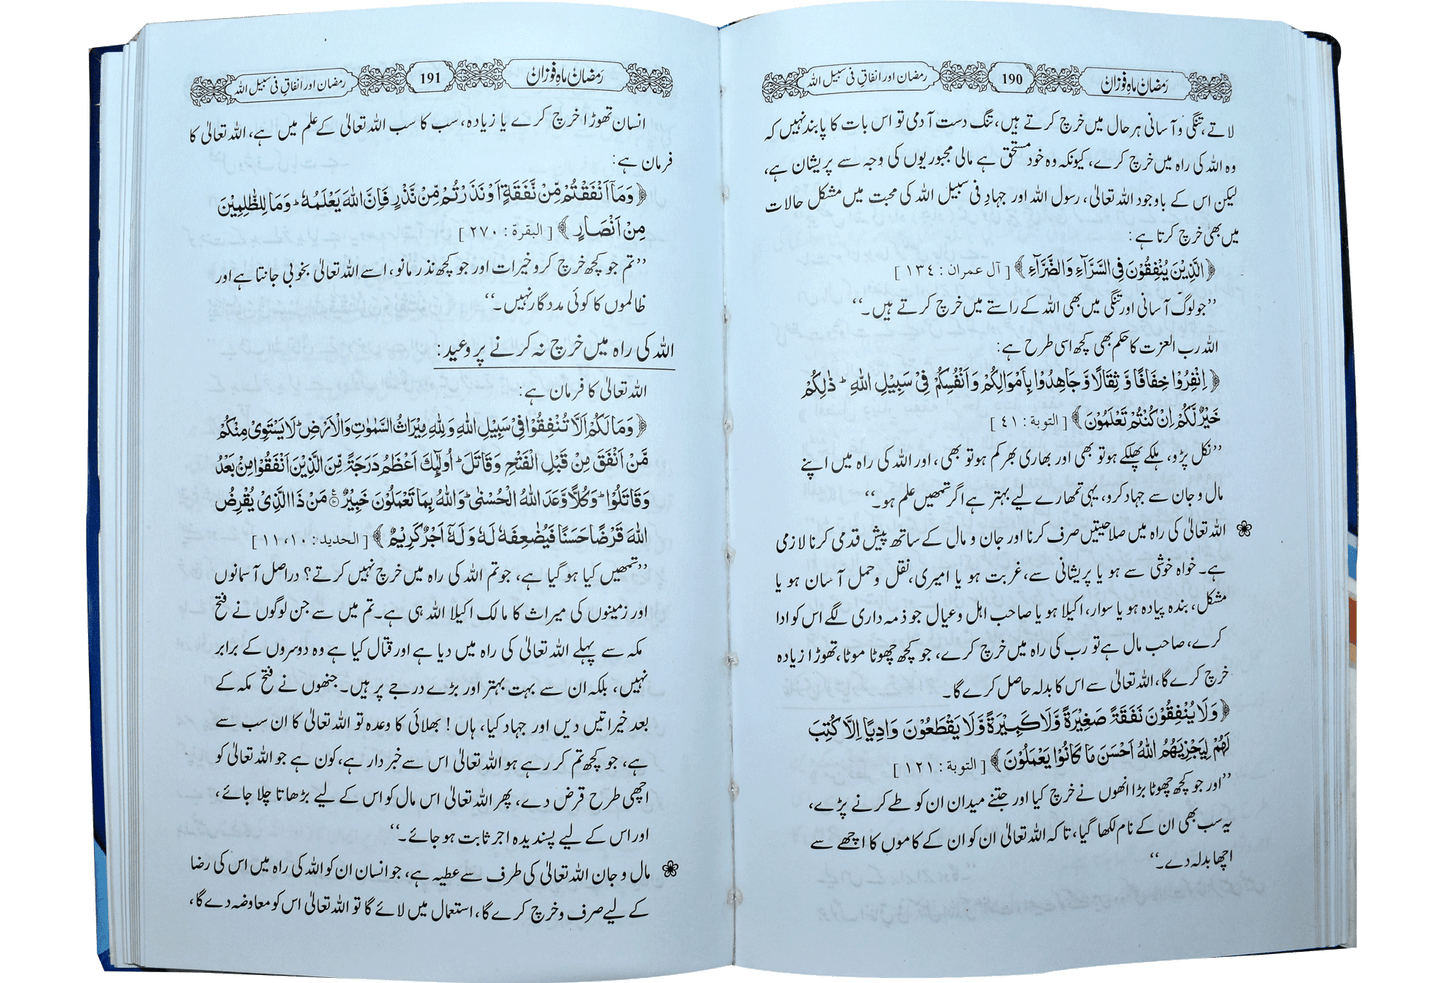 رمضان ماہِ فوزان
190
رمضان اور انفاق فی سبیل اللہ
لاتے، تنگی و آسانی ہر حال میں خرچ کرتے ہیں، تنگ دست آدمی تو اس بات کا پابند نہیں کہ
وہ اللہ کی راہ میں خرچ کرے، کیونکہ وہ خود مستحق ہے مالی مجبوریوں کی وجہ سے پریشان ہے،
لیکن اس کے باوجود اللہ تعالیٰ، رسول اللہ اور جہاد فی سبیل اللہ کی محبت میں مشکل حالات
میں بھی خرچ کرتا ہے:
﴿الَّذِيْنَ يُنْفِقُوْنَ فِي السَّرَّآءِ وَالضَّرَّآءِ﴾ [آل عمران : ١٣٤]
’’جو لوگ آسانی اور تنگی میں بھی اللہ کے راستے میں خرچ کرتے ہیں۔‘‘
اللہ رب العزت کا حکم بھی کچھ اسی طرح ہے:
﴿اِنْفِرُوْا خِفَافًا وَّ ثِقَالًا وَّ جَاهِدُوْا بِاَمْوَالِكُمْ وَ اَنْفُسِكُمْ فِيْ سَبِيْلِ اللّٰهِ ۭ ذٰلِكُمْ
خَيْرٌ لَّكُمْ اِنْ كُنْتُمْ تَعْلَمُوْنَ﴾ [التوبة : ٤١]
’’نکل پڑو، ہلکے پھلکے ہو تو بھی اور بھاری بھر کم ہو تو بھی، اور اللہ کی راہ میں اپنے
مال و جان سے جہاد کرو، یہی تمھارے لیے بہتر ہے اگر تمھیں علم ہو۔‘‘
❀ اللہ تعالیٰ کی راہ میں صلاحیتیں صرف کرنا اور جان و مال کے ساتھ پیش قدمی کرنا لازمی
ہے۔ خواہ خوشی سے ہو یا پریشانی سے، غربت ہو یا امیری، نقل و حمل آسان ہو یا
مشکل، بندہ پیادہ ہو یا سوار، اکیلا ہو یا صاحب اہل و عیال جو ذمہ داری لگے اس کو ادا
کرے، صاحب مال ہے تو رب کی راہ میں خرچ کرے، جو کچھ چھوٹا موٹا، تھوڑا زیادہ
خرچ کرے گا، اللہ تعالیٰ سے اس کا بدلہ حاصل کرے گا۔
﴿وَلَا يُنْفِقُوْنَ نَفَقَةً صَغِيْرَةً وَّلَا كَبِيْرَةً وَّلَا يَقْطَعُوْنَ وَادِيًا اِلَّا كُتِبَ
لَهُمْ لِيَجْزِيَهُمُ اللّٰهُ اَحْسَنَ مَا كَانُوْا يَعْمَلُوْنَ﴾ [التوبة : ١٢١]
’’اور جو کچھ چھوٹا بڑا انھوں نے خرچ کیا اور جتنے میدان ان کو طے کرنے پڑے،
یہ سب بھی ان کے نام لکھا گیا، تاکہ اللہ تعالیٰ ان کو ان کے کاموں کا اچھے سے
اچھا بدلہ دے۔‘‘
رمضان ماہِ فوزان
191
رمضان اور انفاق فی سبیل اللہ
انسان تھوڑا خرچ کرے یا زیادہ، سب کا سب اللہ تعالیٰ کے علم میں ہے، اللہ تعالیٰ کا
فرمان ہے:
﴿وَمَآ اَنْفَقْتُمْ مِّنْ نَّفَقَةٍ اَوْ نَذَرْتُمْ مِّنْ نَّذْرٍ فَاِنَّ اللّٰهَ يَعْلَمُهٗ ۭ وَمَا لِلظّٰلِمِيْنَ
مِنْ اَنْصَارٍ﴾ [البقرة : ٢٧٠]
’’تم جو کچھ خرچ کرو خیرات اور جو کچھ نذر مانو، اسے اللہ تعالیٰ بخوبی جانتا ہے اور
ظالموں کا کوئی مددگار نہیں۔‘‘
اللہ کی راہ میں خرچ نہ کرنے پر وعید:
اللہ تعالیٰ کا فرمان ہے:
﴿وَمَا لَكُمْ اَلَّا تُنْفِقُوْا فِيْ سَبِيْلِ اللّٰهِ وَلِلّٰهِ مِيْرَاثُ السَّمٰوٰتِ وَالْاَرْضِ ۭ لَا يَسْتَوِيْ مِنْكُمْ
مَّنْ اَنْفَقَ مِنْ قَبْلِ الْفَتْحِ وَقَاتَلَ ۭ اُولٰٓئِكَ اَعْظَمُ دَرَجَةً مِّنَ الَّذِيْنَ اَنْفَقُوْا مِنْۢ بَعْدُ
وَقَاتَلُوْا ۭ وَكُلًّا وَّعَدَ اللّٰهُ الْحُسْنٰى ۭ وَاللّٰهُ بِمَا تَعْمَلُوْنَ خَبِيْرٌ ۧ مَنْ ذَا الَّذِيْ يُقْرِضُ
اللّٰهَ قَرْضًا حَسَنًا فَيُضٰعِفَهٗ لَهٗ وَ لَهٗٓ اَجْرٌ كَرِيْمٌ﴾ [الحديد : ١٠، ١١]
’’تمھیں کیا ہو گیا ہے، جو تم اللہ کی راہ میں خرچ نہیں کرتے؟ دراصل آسمانوں
اور زمینوں کی میراث کا مالک اکیلا اللہ ہی ہے۔ تم میں سے جن لوگوں نے فتح
مکہ سے پہلے اللہ تعالیٰ کی راہ میں دیا ہے اور قتال کیا ہے وہ دوسروں کے برابر
نہیں، بلکہ ان سے بہت بہتر اور بڑے درجے پر ہیں۔ جنھوں نے فتح مکہ کے
بعد خیراتیں دیں اور جہاد کیا، ہاں! بھلائی کا وعدہ تو اللہ تعالیٰ کا ان سب سے
ہے، جو کچھ تم کر رہے ہو اللہ تعالیٰ اس سے خبردار ہے، کون ہے جو اللہ تعالیٰ کو
اچھی طرح قرض دے، پھر اللہ تعالیٰ اس مال کو اس کے لیے بڑھاتا چلا جائے،
اور اس کے لیے پسندیدہ اجر ثابت ہو جائے۔‘‘
❀ مال و جان اللہ تعالیٰ کی طرف سے عطیہ ہے، جو انسان ان کو اللہ کی راہ میں اس کی رضا
کے لیے صرف و خرچ کرے گا، استعمال میں لائے گا تو اللہ تعالیٰ اس کو معاوضہ دے گا،